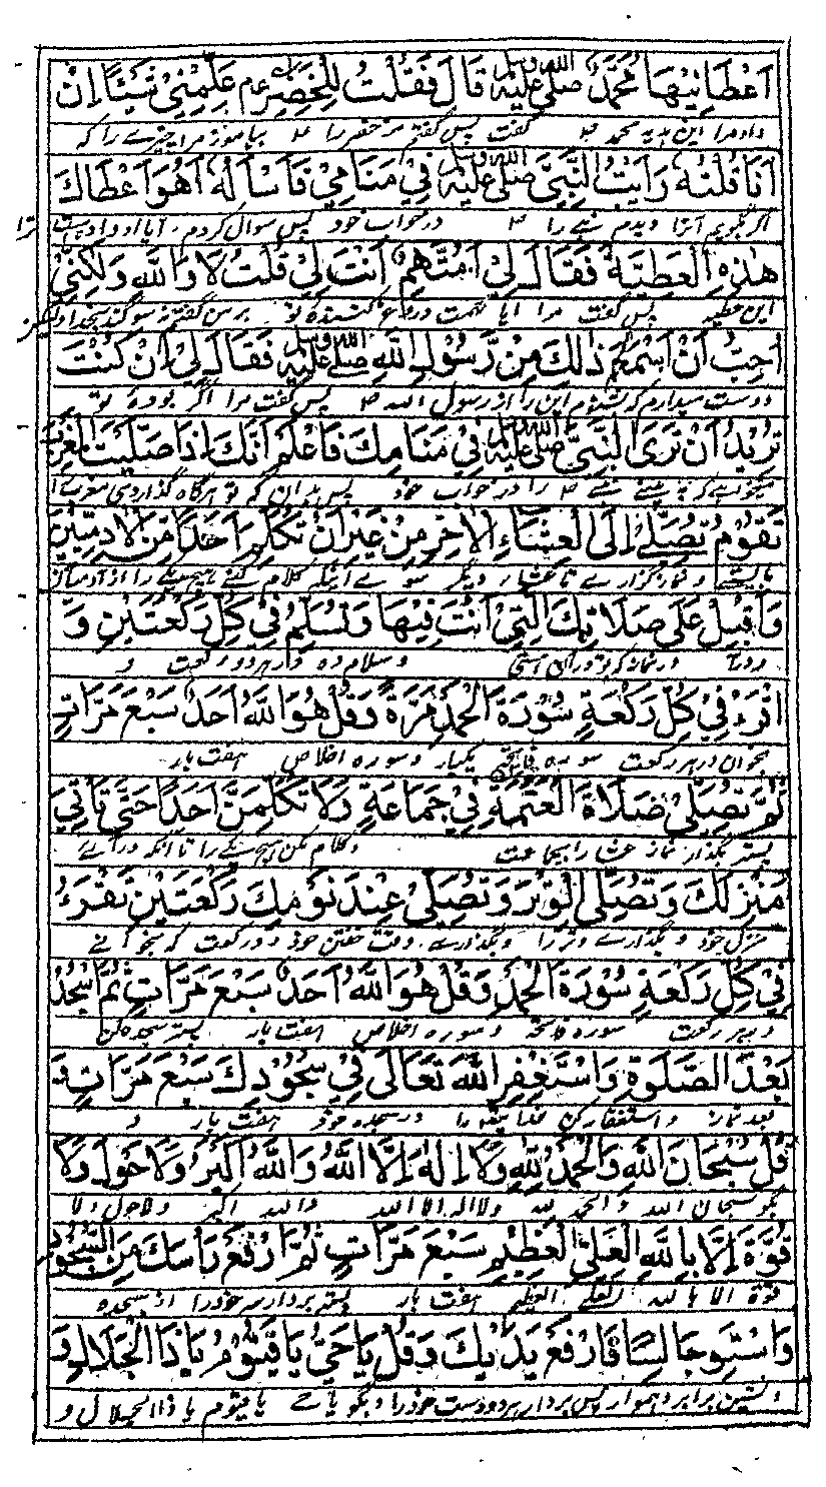 اَعْطَانِيْهَا مُحَمَّدٌ صلى الله عليه وسلم قَالَ فَقُلْتُ لِلْخِضِرِ عم عَلِّمْنِيْ شَيْئًا اِنْ
داد مرا این هدیه محمد ص گفت پس گفتم من خضر را ع بیاموز مرا چیزے را که
اَنَا قُلْتُهٗ رَاَيْتُ النَّبِيَّ صلى الله عليه وسلم فِيْ مَنَامِيْ فَاَسْاَلُهٗ اَهُوَ اَعْطَاكَ
اگر بگویم آنرا دیدم نبی را ص در خواب خود پس سوال کردم آیا او داد است ترا
هٰذِهِ الْعَطِيَّةَ فَقَالَ لِيْ اَمُتَّهِمٌ اَنْتَ لِيْ قُلْتُ لَا وَاللّٰهِ وَلٰكِنِّيْ
این عطیه پس گفت مرا آیا تهمت دروغ کننده تو بر من گفتم نه سوگند بخدا ولیکن
اُحِبُّ اَنْ اَسْمَعَ ذٰلِكَ مِنْ رَّسُوْلِ اللّٰهِ صلى الله عليه وسلم فَقَالَ لِيْ اِنْ كُنْتَ
دوست میدارم که بشنوم این را از رسول الله ص پس گفت مرا اگر بوده تو
تُرِيْدُ اَنْ تَرَى النَّبِيَّ صلى الله عليه وسلم فِيْ مَنَامِكَ فَاعْلَمْ اَنَّكَ اِذَا صَلَّيْتَ الْمَغْرِبَ
میخواهی که به بینی نبی ص را در خواب خود پس بدان که تو هرگاه گذاردی مغرب را
تَقُوْمُ تُصَلِّيْ اِلَى الْعِشَاءِ الْاٰخِرِ مِنْ غَيْرِ اَنْ تُكَلِّمَ اَحَدًا مِّنَ الْاٰدَمِيِّيْنَ
بایستی و نماز گزارے تا عشاء دیگر سواے آنکه کلام کنی هیچ یکے را از آدمیان
وَاَقْبِلْ عَلٰى صَلَاتِكَ الَّتِيْ اَنْتَ فِيْهَا وَتُسَلِّمُ فِيْ كُلِّ رَكْعَتَيْنِ وَ
در نماز که تو در آن هستی و سلام ده در هر دو رکعت و
اقْرَءْ فِيْ كُلِّ رَكْعَةٍ سُوْرَةَ الْحَمْدِ مَرَّةً وَقُلْ هُوَ اللّٰهُ اَحَدٌ سَبْعَ مَرَّاتٍ
بخوان در هر رکعت سوره فاتحه یکبار و سوره اخلاص هفت بار
ثُمَّ تُصَلِّيْ صَلَاةَ الْعَتَمَةِ فِيْ جَمَاعَةٍ وَلَا تُكَلِّمَنَّ اَحَدًا حَتّٰى تَاْتِيَ
پستر بگذار نماز عشا را بجماعت و کلام مکن هیچ یکے را تا آنکه در آے
مَنْزِلَكَ وَتُصَلِّي الْوِتْرَ وَتُصَلِّيْ عِنْدَ نَوْمِكَ رَكْعَتَيْنِ تَقْرَءُ
منزل خود و بگذارے وتر را و بگذارے وقت خفتن خود دو رکعت که بخوانے
فِيْ كُلِّ رَكْعَةٍ سُوْرَةَ الْحَمْدِ وَقُلْ هُوَ اللّٰهُ اَحَدٌ سَبْعَ مَرَّاتٍ ثُمَّ اسْجُدْ
در هر رکعت سوره فاتحه و سوره اخلاص هفت بار پستر سجده کن
بَعْدَ الصَّلٰوةِ وَاسْتَغْفِرِ اللّٰهَ تَعَالٰى فِيْ سُجُوْدِكَ سَبْعَ مَرَّاتٍ وَ
بعد نماز و استغفار کن خدا را در سجده خود هفت بار و
قُلْ سُبْحَانَ اللّٰهِ وَالْحَمْدُ لِلّٰهِ وَلَا اِلٰهَ اِلَّا اللّٰهُ وَاللّٰهُ اَكْبَرُ وَلَا حَوْلَ وَلَا
بگو سبحان الله و الحمد لله ولا اله الا الله والله اکبر ولا حول ولا
قُوَّةَ اِلَّا بِاللّٰهِ الْعَلِيِّ الْعَظِيْمِ سَبْعَ مَرَّاتٍ ثُمَّ ارْفَعْ رَاْسَكَ مِنَ السُّجُوْدِ
قوة الا بالله العلی العظیم هفت بار پستر بردار سر خود را از سجده
وَاسْتَوِ جَالِسًا فَارْفَعْ يَدَيْكَ وَقُلْ يَا حَيُّ يَا قَيُّوْمُ يَا ذَا الْجَلَالِ وَ
و بنشین برابر و هموار پس بردار هر دو دست خود را و بگو یا حی یا قیوم یا ذا الجلال و